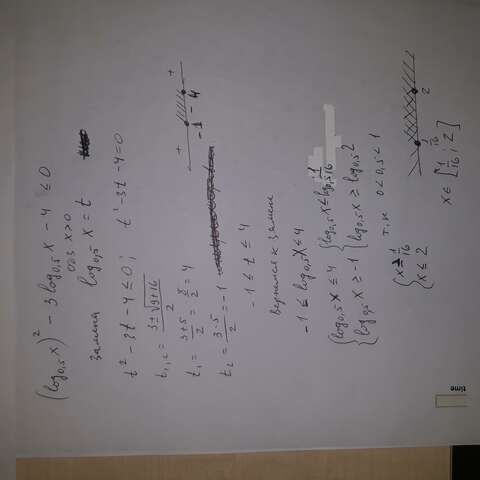 (log₀,₅ x)² - 3log₀,₅ x - 4 ≤ 0
ОДЗ x>0
замена log₀,₅ x = t
t² - 3t - 4 ≤ 0; t² - 3t - 4 = 0
t₁,₂ = (3±√9+16)/2
t₁ = (3+5)/2 = 8/2 = 4
t₂ = (3-5)/2 = -1
+ - +
-1 4
-1 ≤ t ≤ 4
Вернёмся к замене
-1 ≤ log₀,₅ x ≤ 4
{log₀,₅ x ≤ 4 {log₀,₅ x ≤ log₀,₅ 1/16
{log₀,₅ x ≥ -1 {log₀,₅ x ≥ log₀,₅ 2
т.к 0<0,5<1
{x ≥ 1/16
{x ≤ 2
1/16 2
x ∈ [1/16; 2]
time